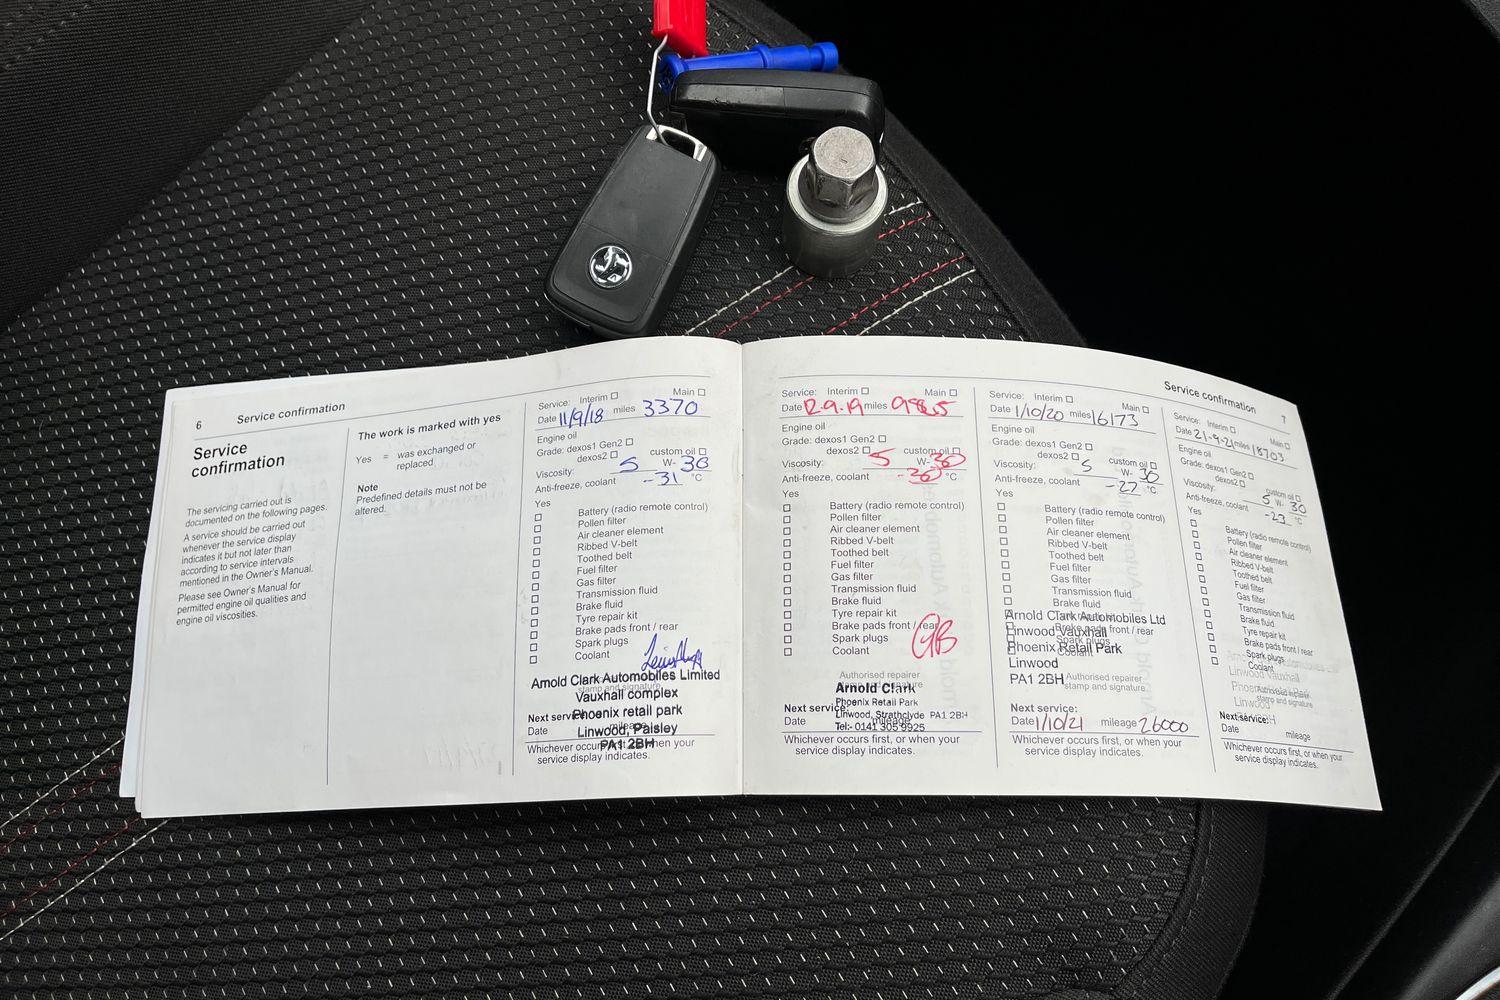 6
Service confirmation
Service
confirmation
The servicing carried out is
documented on the following pages.
A service should be carried out
whenever the service display
indicates it but not later than
according to service intervals
mentioned in the Owner's Manual.
Please see Owner's Manual for
permitted engine oil qualities and
engine oil viscosities.
The work is marked with yes
Yes = was exchanged or
replaced
Note
Predefined details must not be
altered.
Service: Interim Main
Date 11/9/18 miles 3370
Engine oil
Grade: dexos1 Gen2
dexos2 custom oil
Viscosity: 5 W- 30
Anti-freeze, coolant -31 °C
Yes
Battery (radio remote control)
Pollen filter
Air cleaner element
Ribbed V-belt
Toothed belt
Fuel filter
Gas filter
Transmission fluid
Brake fluid
Tyre repair kit
Brake pads front / rear
Spark plugs
Coolant
Arnold Clark Automobiles Limited
stamp and signature
Vauxhall complex
Phoenix retail park
Next service:
Linwood, Paisley
Date mileage
PA1 2BH
Whichever occurs first, or when your
service display indicates.
Service confirmation
7
Service: Interim Main
Date 12.9.19 miles
Engine oil
Grade: dexos1 Gen2
dexos2 custom oil
Viscosity: 5 W- 30
Anti-freeze, coolant -36 °C
Yes
Battery (radio remote control)
Pollen filter
Air cleaner element
Ribbed V-belt
Toothed belt
Fuel filter
Gas filter
Transmission fluid
Brake fluid
Tyre repair kit
Brake pads front / rear
Spark plugs
Coolant
GB
Authorised repairer
stamp and signature
Arnold Clark
Phoenix Retail Park
Linwood, Strathclyde PA1 2BH
Tel:- 0141 305 9925
Next service:
Date mileage
Whichever occurs first, or when your
service display indicates.
Service: Interim Main
Date 1/10/20 miles 16173
Engine oil
Grade: dexos1 Gen2
dexos2 custom oil
Viscosity: 5 W- 30
Anti-freeze, coolant -27 °C
Yes
Battery (radio remote control)
Pollen filter
Air cleaner element
Ribbed V-belt
Toothed belt
Fuel filter
Gas filter
Transmission fluid
Brake fluid
Arnold Clark Automobiles Ltd
Brake pads front / rear
Linwood Vauxhall
Spark plugs
Phoenix Retail Park
Coolant
Linwood
PA1 2BH
stamp and signature
Next service:
Date 1/10/21 mileage 26000
Whichever occurs first, or when your
service display indicates.
Service: Interim Main
Date 21-9-21 miles 18703
Engine oil
Grade: dexos1 Gen2
dexos2 custom oil
Viscosity: 5 W- 30
Anti-freeze, coolant -23 °C
Yes
Battery (radio remote control)
Pollen filter
Air cleaner element
Ribbed V-belt
Toothed belt
Fuel filter
Gas filter
Transmission fluid
Brake fluid
Tyre repair kit
Brake pads front / rear
Spark plugs
Coolant
Linwood Vauxhall
Authorised repairer
stamp and signature
Linwood
Next service:
Date mileage
Whichever occurs first, or when your
service display indicates.